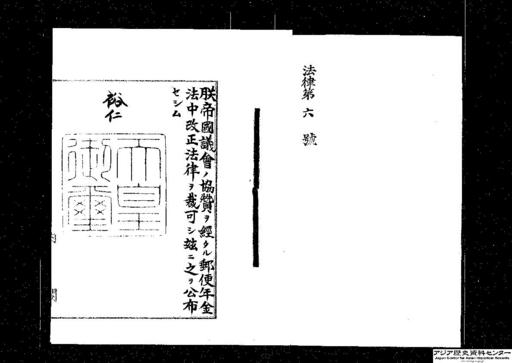 法律第六號
朕帝國議會ノ協贊ヲ經タル郵便年金
法中改正法律ヲ裁可シ玆ニ之ヲ公布
セシム
裕仁
天皇
御璽
アジア歴史資料センター
Japan Center for Asian Historical Records